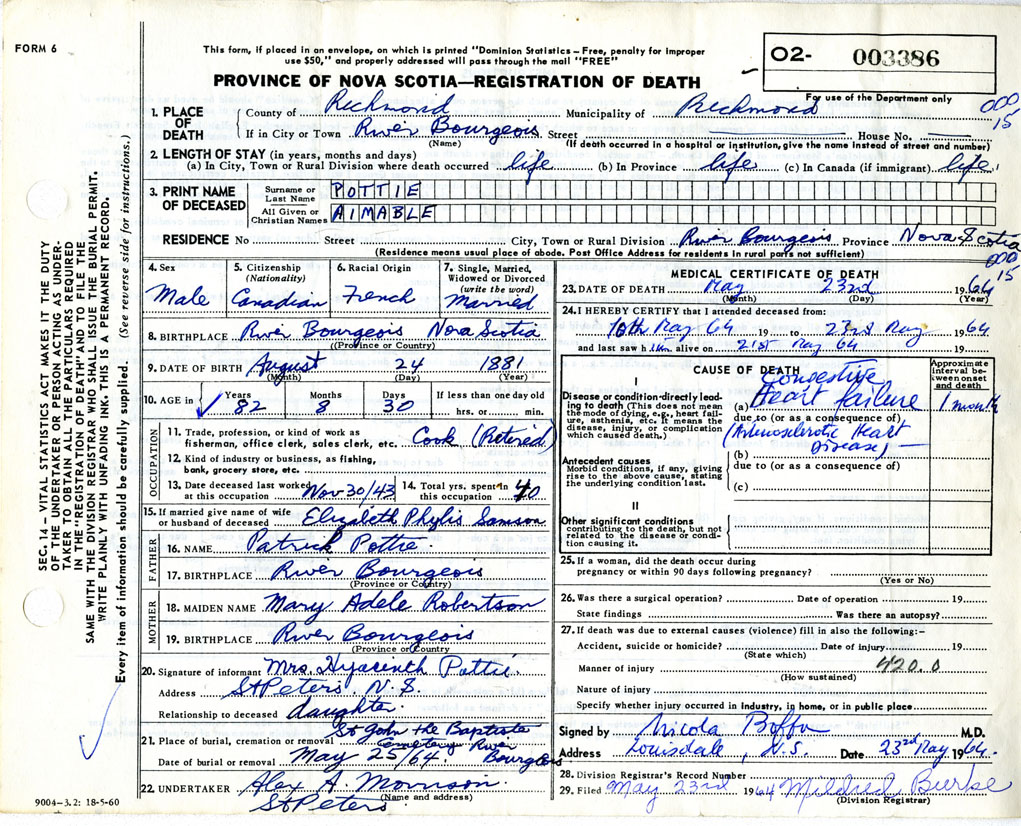 FORM 6
This form, if placed in an envelope, on which is printed "Dominion Statistics – Free, penalty for improper
use $50," and properly addressed will pass through the mail "FREE"
PROVINCE OF NOVA SCOTIA—REGISTRATION OF DEATH
O2- 003386
For use of the Department only
000
15
SEC. 14 – VITAL STATISTICS ACT MAKES IT THE DUTY
OF THE UNDERTAKER OR PERSON ACTING AS UNDER-
TAKER TO OBTAIN ALL THE PARTICULARS REQUIRED
IN THE "REGISTRATION OF DEATH" AND TO FILE THE
SAME WITH THE DIVISION REGISTRAR WHO SHALL ISSUE THE BURIAL PERMIT.
WRITE PLAINLY WITH UNFADING INK. THIS IS A PERMANENT RECORD.
Every item of information should be carefully supplied. (See reverse side for instructions.)
1. PLACE OF DEATH County of Richmond Municipality of Richmond
If in City or Town River Bourgeois Street House No.
(Name) (If death occurred in a hospital or institution, give the name instead of street and number)
2. LENGTH OF STAY (in years, months and days)
(a) In City, Town or Rural Division where death occurred life (b) In Province life (c) In Canada (if immigrant) life
3. PRINT NAME OF DECEASED Surname or Last Name POTTIE
All Given or Christian Names AIMABLE
RESIDENCE No Street City, Town or Rural Division River Bourgeois Province Nova Scotia
(Residence means usual place of abode. Post Office Address for residents in rural parts not sufficient)
000
15
4. Sex Male
5. Citizenship (Nationality) Canadian
6. Racial Origin French
7. Single, Married, Widowed or Divorced (write the word) Married
8. BIRTHPLACE River Bourgeois Nova Scotia
(Province or Country)
9. DATE OF BIRTH August 24 1881
(Month) (Day) (Year)
10. AGE in Years Months Days If less than one day old
82 8 30 hrs. or min.
OCCUPATION
11. Trade, profession, or kind of work as
fisherman, office clerk, sales clerk, etc. Cook (Retired)
12. Kind of industry or business, as fishing,
bank, grocery store, etc.
13. Date deceased last worked at this occupation Nov 30/43
14. Total yrs. spent in this occupation 40
15. If married give name of wife
or husband of deceased Elizabeth Phylis Samson
FATHER
16. NAME Patrick Pottie
17. BIRTHPLACE River Bourgeois
(Province or Country)
MOTHER
18. MAIDEN NAME Mary Adele Robertson
19. BIRTHPLACE River Bourgeois
(Province or Country
20. Signature of informant Mrs. Hyacinth Pottie
Address St Peters, N.S.
Relationship to deceased daughter
21. Place of burial, cremation or removal St John the Baptiste
Cemetery River
Bourgeois
Date of burial or removal May 25/64
22. UNDERTAKER Alex A. Morrison
(Name and address)
St Peters
9004–3.2: 18-5-60
MEDICAL CERTIFICATE OF DEATH
23. DATE OF DEATH May 23rd 1964
(Month) (Day) (Year)
24. I HEREBY CERTIFY that I attended deceased from:
10th May 64 19 to 23rd May 1964
and last saw him alive on 21st May 64 19
CAUSE OF DEATH
Approximate interval between onset and death
I
Disease or condition directly lead-
ing to death (This does not mean
the mode of dying, e.g., heart fail-
ure, asthenia, etc. It means the
disease, injury, or complication
which caused death.)
(a) Congestive
Heart failure 1 month
due to (or as a consequence of)
(Arteriosclerotic Heart
Disease)
Antecedent causes
Morbid conditions, if any, giving
rise to the above cause, stating
the underlying condition last.
(b)
due to (or as a consequence of)
(c)
II
Other significant conditions
contributing to the death, but not
related to the disease or condi-
tion causing it.
25. If a woman, did the death occur during
pregnancy or within 90 days following pregnancy?
(Yes or No)
26. Was there a surgical operation? Date of operation 19
State findings Was there an autopsy?
27. If death was due to external causes (violence) fill in also the following:–
Accident, suicide or homicide? Date of injury 19
(State which)
Manner of injury 420.0
(How sustained)
Nature of injury
Specify whether injury occurred in industry, in home, or in public place
Signed by Nicola M.D.
Address Louisdale, N.S. Date 23rd May 1964
28. Division Registrar's Record Number
29. Filed May 23rd 1964 Mildred Burke
(Division Registrar)